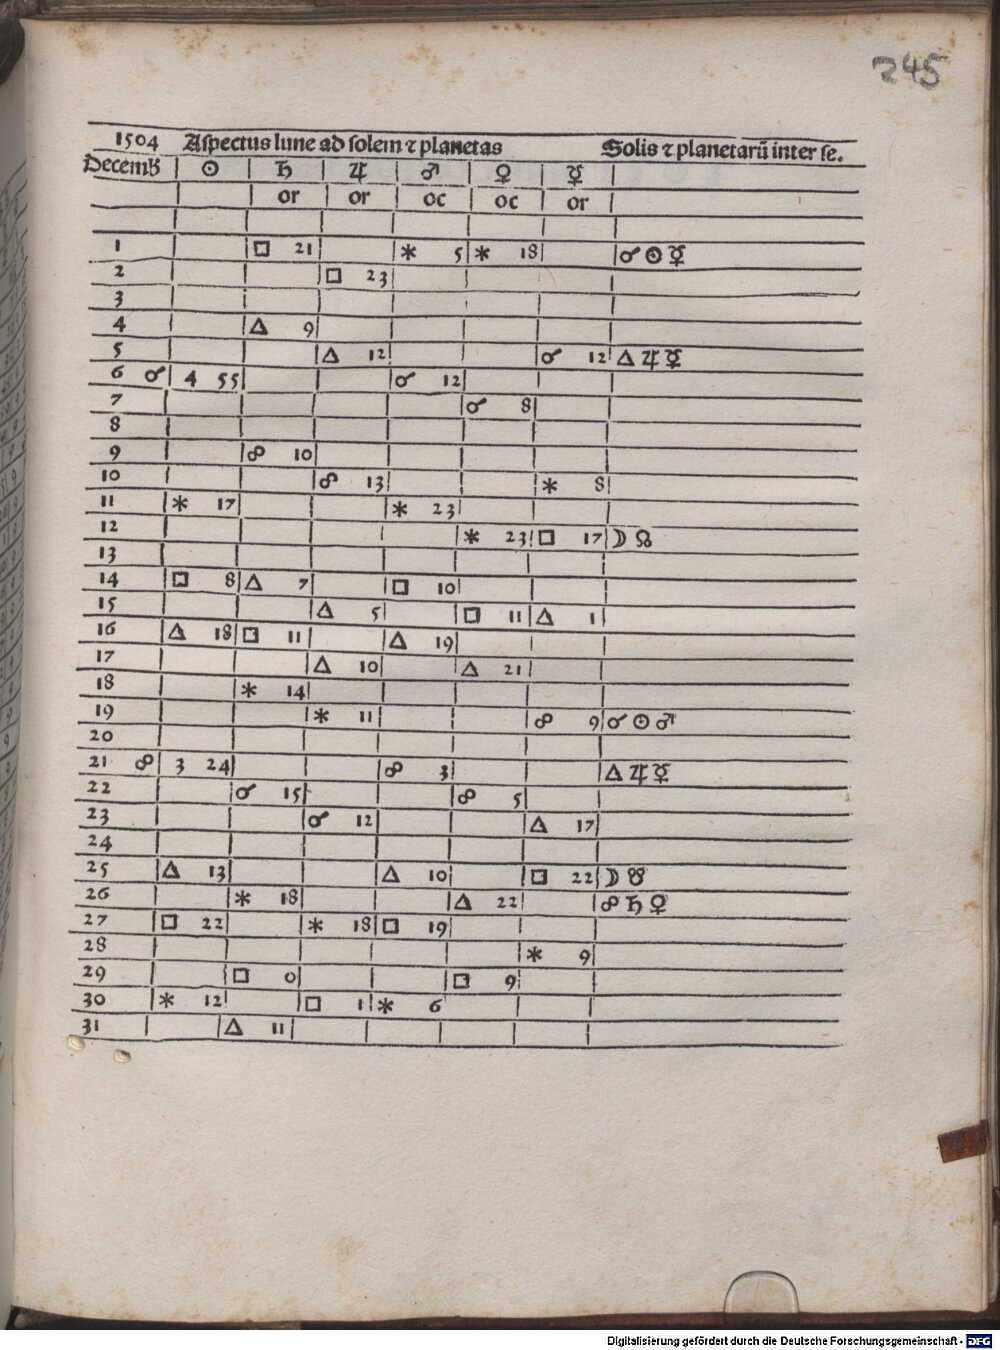 245
1504 Aſpectus lune ad ſolem ⁊ planetas Solis ⁊ planetarū inter ſe.
Decemb ☉ ♄ ♃ ♂ ♀ ☿
or or oc oc or
1 □ 21 ✶ 5 ✶ 18 ☌ ☉ ☿
2 □ 23
3
4 △ 9
5 △ 12 ☌ 12 △ ♃ ☿
6 ☌ 4 55 ☌ 12
7 ☌ 8
8
9 ☍ 10
10 ☍ 13 ✶ 8
11 ✶ 17 ✶ 23
12 ✶ 23 □ 17 ☽ ☊
13
14 □ 8 △ 7 □ 10
15 △ 5 □ 11 △ 1
16 △ 18 □ 11 △ 19
17 △ 10 △ 21
18 ✶ 14
19 ✶ 11 ☍ 9 ☌ ☉ ♂
20
21 ☍ 3 24 ☍ 3 △ ♃ ☿
22 ☌ 15 ☍ 5
23 ☌ 12 △ 17
24
25 △ 13 △ 10 □ 22 ☽ ☋
26 ✶ 18 △ 22 ☍ ♄ ♀
27 □ 22 ✶ 18 □ 19
28 ✶ 9
29 □ 0 □ 9
30 ✶ 12 □ 1 ✶ 6
31 △ 11
Digitalisierung gefördert durch die Deutsche Forschungsgemeinschaft - DFG